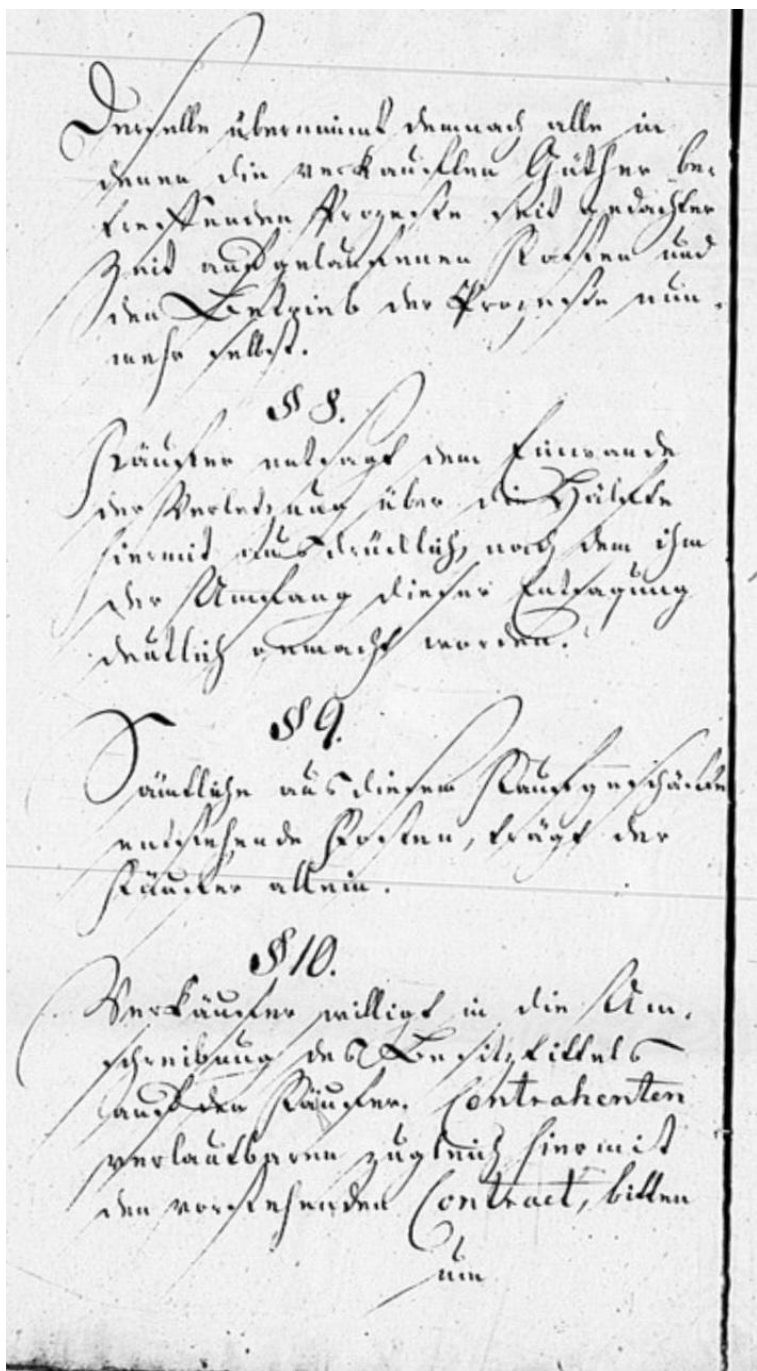 Derselbe übernimmt demnach alle in
denen die verkauften Güther be-
treffenden Prozesse seit gedachter
Zeit aufgelaufenen Kosten und
den Betrieb der Prozesse nun-
mehr selbst.
§ 8.
Käufer entsagt dem Einwande
der Verletzung über die Hälfte
hiermit ausdrücklich, nach dem ihm
der Umfang dieser Entsagung
deutlich gemacht worden.
§ 9.
Sämtliche aus diesem Kaufgeschäfte
entstehende Kosten, trägt der
Käufer allein.
§ 10.
Verkäufer willigt in die Um-
schreibung des Besitztittels
auf den Käufer. Contrahenten
verlautbaren zugleich hiermit
den vorstehenden Contract, bitten
um